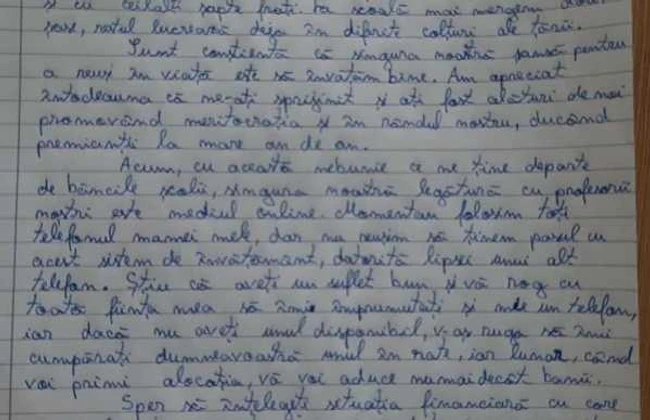 și cu ceilalți șapte frați la școală mai mergem doar
șase, restul lucrează deja în diferite colțuri ale țării.
Sunt conștientă că singura noastră șansă pentru
a reuși în viață este să învățăm bine. Am apreciat
întodeauna că ne-ați sprijinit și ați fost alături de noi
promovând meritocrația și în rândul nostru, ducând
premianții la mare an de an.
Acum, cu această nebunie ce ne ține departe
de băncile școlii, singura noastră legătură cu profesorii
noștri este mediul online. Momentan folosim toți
telefonul mamei mele, dar nu reușim să ținem pasul cu
acest sistem de învățământ, datorită lipsei unui alt
telefon. Știu că aveți un suflet bun, și vă rog cu
toată ființa mea să îmi împrumutați și mie un telefon,
iar dacă nu aveți unul disponibil, v-aș ruga să îmi
cumpărați dumneavoastră unul în rate, iar lunar, când
voi primi alocația, vă voi aduce numaidecât banii.
Sper să înțelegeți situația financiară cu care